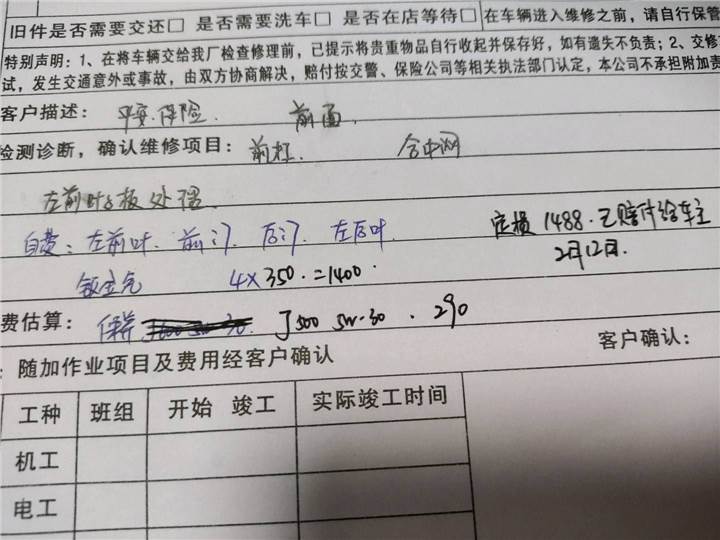 旧件是否需要交还□ 是否需要洗车□ 是否在店等待□ 在车辆进入维修之前，请自行保管
特别声明：1、在将车辆交给我厂检查修理前，已提示将贵重物品自行收起并保存好，如有遗失不负责；2、交修
试，发生交通意外或事故，由双方协商解决，赔付按交警、保险公司等相关执法部门认定，本公司不承担附加责
客户描述： 平安.保险. 前面.
检测诊断，确认维修项目： 前杠. 含中网
左前叶子板处理.
自费：左前叶. 前门. 后门. 左后叶. 定损 1488.已赔付给车主
2月12日.
钣金免 4×350.=1400.
费估算： 保养 J500 5W-30 . 290
：随加作业项目及费用经客户确认 客户确认：
工种 班组 开始 竣工 实际竣工时间
机工
电工